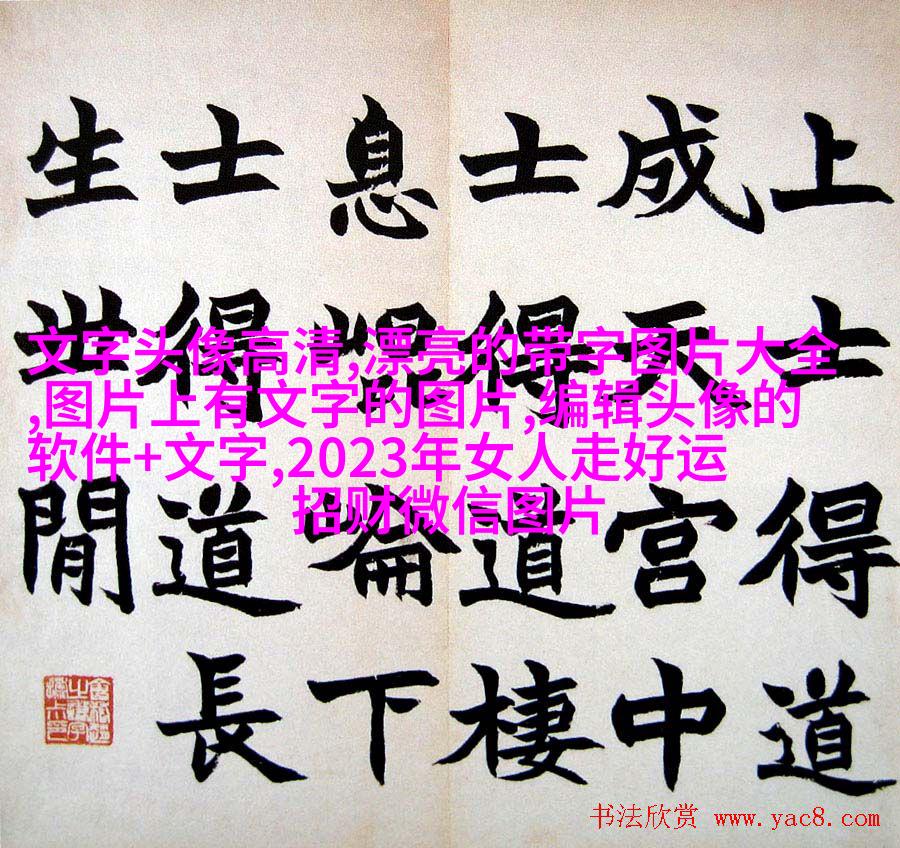 上士得道
成天宫中
士得道棲
息崘下
士得道長
生世閒
文字头像高清,漂亮的带字图片大全
,图片上有文字的图片,编辑头像的
软件+文字,2023年女人走好运
招财微信图片
书法欣赏 www.yac8.com